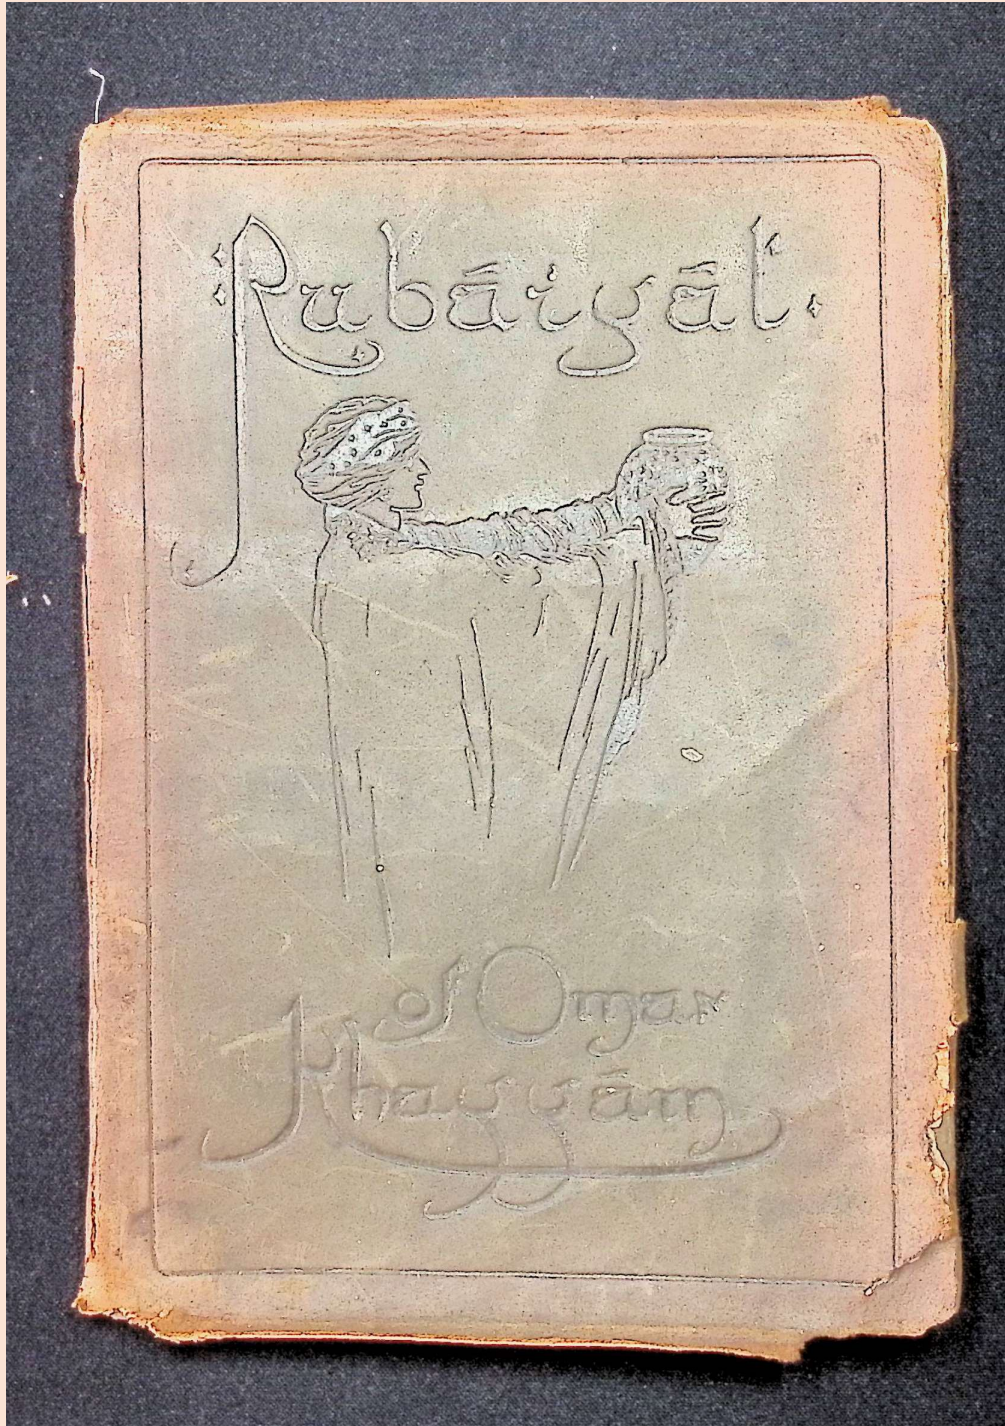 Rubáiyát.
of Omar
Khayyám